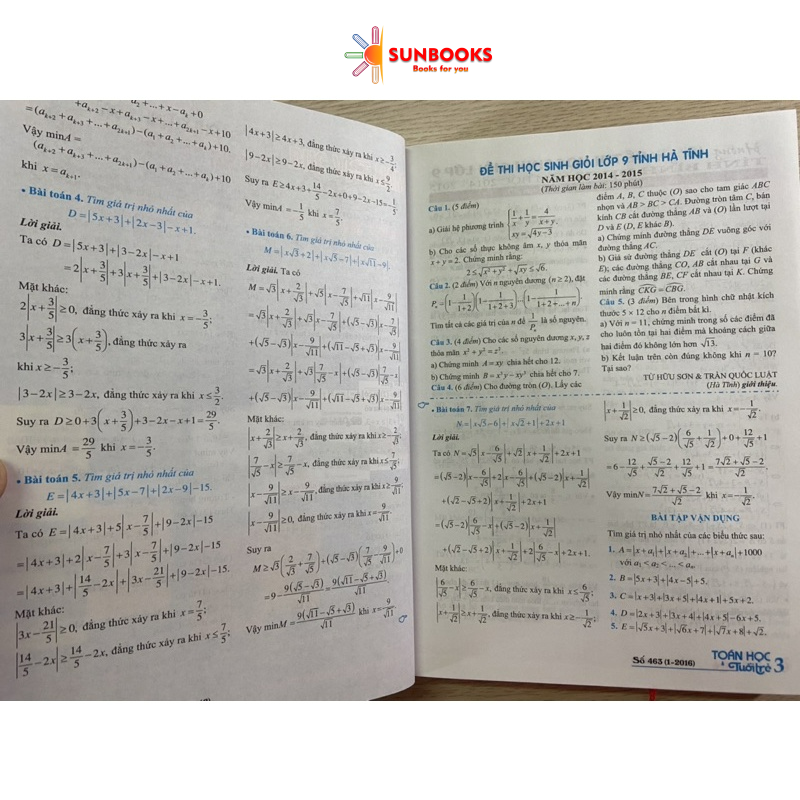 SUNBOOKS
Books for you
=(aₖ₊₂+aₖ₊₃+...+a₂ₖ₊₁)−(a₁+a₂+...+aₖ)+10.
Vậy minA =
(aₖ₊₂+aₖ₊₃+...+a₂ₖ₊₁)−(a₁+a₂+...+aₖ)+10
khi x=aₖ₊₁.
• Bài toán 4. Tìm giá trị nhỏ nhất của
D=|5x+3|+|2x−3|−x+1.
Lời giải.
Ta có D=|5x+3|+|3−2x|−x+1
=2|x+3/5|+3|x+3/5|+|3−2x|−x+1.
Mặt khác:
2|x+3/5|≥0, đẳng thức xảy ra khi x=−3/5;
3|x+3/5|≥3(x+3/5), đẳng thức xảy ra
khi x≥−3/5;
|3−2x|≥3−2x, đẳng thức xảy ra khi x≤3/2.
Suy ra D≥0+3(x+3/5)+3−2x−x+1=29/5.
Vậy minA=29/5 khi x=−3/5.
• Bài toán 5. Tìm giá trị nhỏ nhất của
E=|4x+3|+|5x−7|+|2x−9|−15.
Lời giải.
Ta có E=|4x+3|+5|x−7/5|+|9−2x|−15
=|4x+3|+2|x−7/5|+3|x−7/5|+|9−2x|−15
=|4x+3|+|14/5−2x|+|3x−21/5|+|9−2x|−15.
Mặt khác:
|3x−21/5|≥0, đẳng thức xảy ra khi x=7/5;
|14/5−2x|≥14/5−2x, đẳng thức xảy ra khi x≤7/5;
|4x+3|≥4x+3, đẳng thức xảy ra khi x≥−3/4;
|9−2x|≥9−2x, đẳng thức xảy ra khi x≤9/2.
Suy ra E≥4x+3+14/5−2x+0+9−2x−15=−1/5.
Vậy minA=−1/5 khi x=7/5.
• Bài toán 6. Tìm giá trị nhỏ nhất của
M=|x√3+2|+|x√5−7|+|x√11−9|.
Lời giải. Ta có
M=√3|x+2/√3|+√5|x−7/√5|+√11|x−9/√11|
=√3|x+2/√3|+√3|x−7/√5|+(√5−√3)|x−7/√5|
+(√5−√3)|x−9/√11|+(√11−√5+√3)|x−9/√11|
=√3|x+2/√3|+√3|7/√5−x|+(√5−√3)|7/√5−x|
+(√5−√3)|x−9/√11|+(√11−√5+√3)|x−9/√11|.
Mặt khác:
|x+2/√3|≥x+2/√3, đẳng thức xảy ra khi x≥−2/√3;
|7/√5−x|≥7/√5−x, đẳng thức xảy ra khi x≤7/√5;
|x−9/√11|≥x−9/√11, đẳng thức xảy ra khi x≥9/√11;
|x−9/√11|≥0, đẳng thức xảy ra khi x=9/√11.
Suy ra
M≥√3(2/√3+7/√5)+(√5−√3)(7/√5−9/√11)+0
=9−9(√5−√3)/√11=9(√11−√5+√3)/√11.
Vậy minM=9(√11−√5+√3)/√11 khi x=9/√11.
ĐỀ THI HỌC SINH GIỎI LỚP 9 TỈNH HÀ TĨNH
NĂM HỌC 2014 - 2015
(Thời gian làm bài: 150 phút)
Câu 1. (5 điểm)
a) Giải hệ phương trình {1/x+1/y=4/(x+y)
xy=√(4y−3).
b) Cho các số thực không âm x, y thỏa mãn
x+y=2. Chứng minh rằng:
2≤√(x²+y²)+√xy≤√6.
Câu 2. (2 điểm) Với n nguyên dương (n≥2), đặt
Pₙ=(1−1/(1+2))(1−1/(1+2+3))...(1−1/(1+2+...+n)).
Tìm tất cả các giá trị của n để 1/Pₙ là số nguyên.
Câu 3. (4 điểm) Cho các số nguyên dương x, y, z
thỏa mãn x²+y²=z².
a) Chứng minh A=xy chia hết cho 12.
b) Chứng minh B=x³y−xy³ chia hết cho 7.
Câu 4. (6 điểm) Cho đường tròn (O). Lấy các
điểm A, B, C thuộc (O) sao cho tam giác ABC
nhọn và AB>BC>CA. Đường tròn tâm C, bán
kính CB cắt đường thẳng AB và (O) lần lượt tại
D và E (D, E khác B).
a) Chứng minh đường thẳng DE vuông góc với
đường thẳng AC.
b) Giả sử đường thẳng DE cắt (O) tại F (khác
E); các đường thẳng CO, AB cắt nhau tại G và
các đường thẳng BE, CF cắt nhau tại K. Chứng
minh rằng CKG=CBG.
Câu 5. (3 điểm) Bên trong hình chữ nhật kích
thước 5×12 cho n điểm bất kì.
a) Với n=11, chứng minh trong số các điểm đã
cho luôn tồn tại hai điểm mà khoảng cách giữa
hai điểm đó không lớn hơn √13.
b) Kết luận trên còn đúng không khi n=10?
Tại sao?
TỪ HỮU SƠN & TRẦN QUỐC LUẬT
(Hà Tĩnh) giới thiệu.
• Bài toán 7. Tìm giá trị nhỏ nhất của
N=|x√5−6|+|x√2+1|+2x+1
Lời giải.
Ta có N=√5|x−6/√5|+√2|x+1/√2|+2x+1
=(√5−2)|x−6/√5|+2|x−6/√5|+(√5−2)|x+1/√2|
+(√2−√5+2)|x+1/√2|+2x+1
=(√5−2)|6/√5−x|+(√5−2)|x+1/√2|
+(√2−√5+2)|x+1/√2|+2|6/√5−x|+2x+1.
Mặt khác:
|6/√5−x|≥6/√5−x, đẳng thức xảy ra khi x≤6/√5;
|x+1/√2|≥x+1/√2, đẳng thức xảy ra khi x≥−1/√2;
|x+1/√2|≥0, đẳng thức xảy ra khi x=−1/√2.
Suy ra N≥(√5−2)(6/√5+1/√2)+0+12/√5+1
=6−12/√5+(√5−2)/√2+12/√5+1=(7√2+√5−2)/√2.
Vậy minN=(7√2+√5−2)/√2 khi x=−1/√2.
BÀI TẬP VẬN DỤNG
Tìm giá trị nhỏ nhất của các biểu thức sau:
1. A=|x+a₁|+|x+a₂|+...+|x+aₙ|+1000
với a₁<a₂<...<aₙ.
2. B=|5x+3|+|4x−5|+5.
3. C=|x+3|+|3x+5|+|4x+1|+5x+2.
4. D=|2x+3|+|3x+4|+|4x+5|−6x+5.
5. E=|√5x+3|+|√6x+7|+|√7x+8|+√2.
Số 463 (1-2016)
TOÁN HỌC
& Tuổi trẻ 3